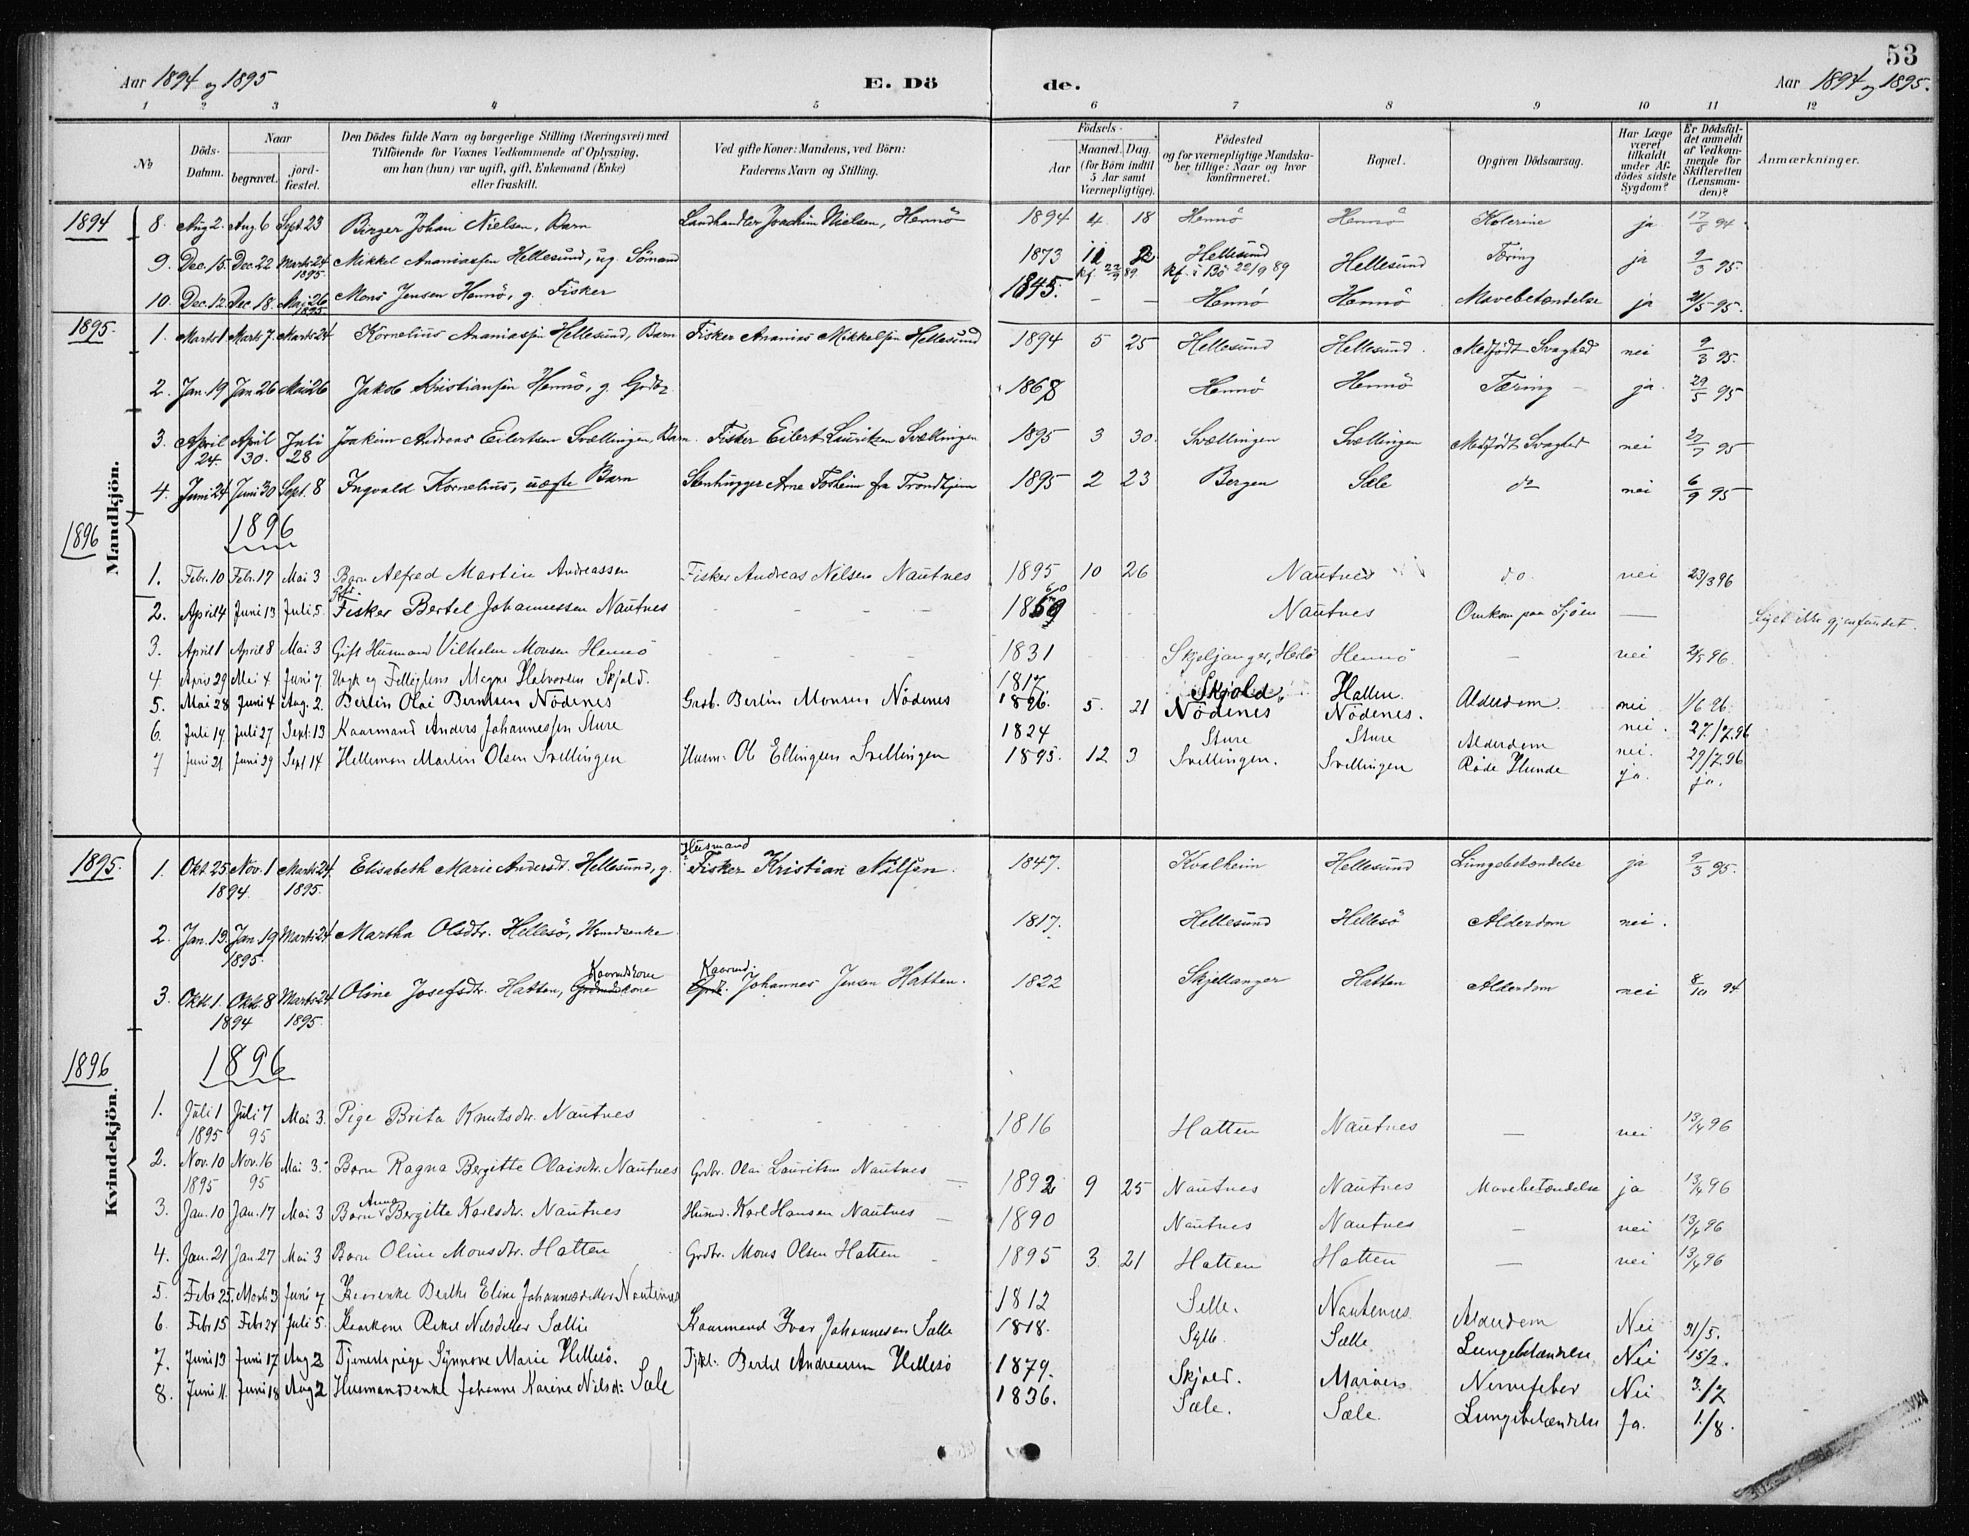 53
Aar 1894 og 1895 E. Dö de. Aar 1894 og 1895.
1 2 3 4 5 6 7 8 9 10 11 12
No Döds-Datum. Naar begravet. jord-fæstet. Den Dödes fulde Navn og borgerlige Stilling (Næringsvei) med Tilföiende for Voxnes Vedkommende af Oplysning, om han (hun) var ugift, gift, Enkemand (Enke) eller fraskilt. Ved gifte Koner: Mandens, ved Börn: Faderens Navn og Stilling. Födsels- Aar Maaned. Dag. (for Börn indtil 5 Aar samt Værnepligtige). Födested og for værnepligtige Mandskaber tillige: Naar og hvor konfirmeret. Bopæl. Opgiven Dödsaarsag. Har Læge været tilkaldt under Afdödes sidste Sygdom? Er Dödsfaldet anmeldt af Vedkommende for Skifteretten (Lensmanden)? Anmærkninger.
Mandkjön.
1894 8. Aug 2. Aug 6 Sept. 23 Birger Johan Nielsen, Barn Landhandler Joachim Nielsen, Hennö 1894 4 18 Hennö Hennö Kolerine ja 17/8 94.
9. Dec. 15. Dec. 22 Marts 24 1895 Mikkel Ananiassen Hellesund, ug. Sömand 1873 11 2 Hellesund kf. i Bö 22/9 89 Hellesund Tæring ja 9/3 95.
10. Dec. 12. Dec. 18. Mai 26 1895 Mons Jensen Hennö, g. Fisker 1845. – – Hennö Hennö Mavebetændelse ja 21/5 95.
1895. 1. Marts 1 Marts 7. Marts 24 Kornelius Ananiassen Hellesund, Barn Fisker Ananias Mikkelsen Hellesund 1894 5 25 Hellesund Hellesund. Medfödt Svaghed nei 9/3 95.
2. Jan. 19 Jan 26 Mai 26 Jakob Kristiansen Hennö, g. 1868 Hennö Hennö Tæring ja. 29/5 95
3. April 24. April 30. Juli 28 Joakim Andreas Eilertsen Svællingen, Barn. Fisker Eilert Lauritzen Svællingen 1895 3 30. Svællingen Svællingen Medfödt Svaghed nei 95
4. Juni 24 Juni 30 Sept. 8 Ingvald Kornelius, uægte Barn Stenhugger Arne Forheim fra Trondhjem 1895 2 23 Bergen Sæle do nei 6/9 95
1896 1896
1. Febr. 10 Febr. 17 Mai 3 Barn Alfred Martin Andreassen Fisker Andreas Nilsen Nautnes 1895 10 26 Nautnes do. nei 23/3 96
2. April 4 Juni 13 Juli 5. Gift Fisker Bertel Johannessen Nautnes Nautnes Omkom paa Sjöen — Liget ikke gjenfundet.
3. April 1 April 8 Mai 3 Gift Husmand Vilhelm Monsen Hennö 1831 Skjeljanger, Herlö Hennö — nei 2/5 96.
4 April 29 Mai 4 Juni 7 Magne Halvorsen Skjold. 1817. Skjold Hatten. Alderdom. nei 1/6 96.
5. Mai 28 Juni 4 Aug. 2. Bertin Olai Berntsen Nödenes Gaardb. Bertin Monsen Nödenes 1896. 5. 21 Nödenes Nödenes. nei. 27/7. 96
6. Juli 19 Juli 27 Sept: 13 Kaarmand Anders Johannessen Sture 1824 Sture Sture Alderdom nei. 29/7. 96
7 Juni 21 Juni 29 Sept 14 Martin Olsen Svellingen Husm: Ole Ellingsen Svellingen 1895. 12 3 Svellingen. Svellingen Röde Hunde ja. ja.
Kvindekjön.
1895. 1. Okt. 25. 1894 Nov. 1 Marts 24. 1895. Elisabeth Marie Andersdt. Hellesund, g. Husmand Fisker Kristian Nilssen. 1847. Kvalheim Hellesund Lungebetændelse ja 9/3 95.
2. Jan. 13. Jan 19 1895. Marts 24 Martha Olsdtr. Hellesö, 1817. Hellesund Hellesö Alderdom nei.
3. Okt. 1. Okt. 8 1894 Marts 24 1895. Oline Josefsdtr. Hatten, Kaarmdskone Kaarmd. Johannes Jensen Hatten. 1822 Skjellanger Hatten Alderdom nei 8/10 94
1896 1896
1. Juli 1 1895 Juli 7 95 Mai 3. Pige Brita Knutsdtr. Nautnes 1816 Hatten Nautnes — nei 13/4 96
2. Nov. 10 1895 Nov. 16 95 Mai 3. Barn Ragna Bergitte Olaisdtr. Nautnes Grdbr. Olai Lauritsen Nautnes 1892 9 25 Nautnes Nautnes Mavebetændelse ja 13/4 96
3. Jan. 10 Jan. 17 Mai 3 Barn Anna Bergitte Karlsdtr. Nautnes Husmd. Karl Hansen Nautnes 1890 Nautnes Nautnes — nei 13/4 96
4. Jan. 21 Jan. 27 Mai 3 Barn Oline Monsdtr. Hatten Grdbr. Mons Olsen Hatten 1895 3. 21 Hatten Hatten — nei 13/4 96
5. Febr 25. Marts 3 Juni 7 Berthe Eline Johannesdatter Nautenes 1812 Selle. Nautenes Alderdom Nei 31/5.
6. Febr 15 Febr 24 Juli 5. Nilsdatter Sællie Kaarmand Ivar Johannesen Sælle 1818. Sælle Lungebetændelse Nei 15/2.
7. Juni 13 Juni 17 Aug 2 Tjenestepige Synnove Marie Hellesö. Bertel Andreassen Hellesö 1879. Skjold. Nervefeber Nei 3./7
8. Juni 11. Juni 18 Aug 2 Husmandsenke Johanne Karine Nilsd: Sæle 1836. Sæle. Sæle. Lungebetændelse Ja. 1./8.